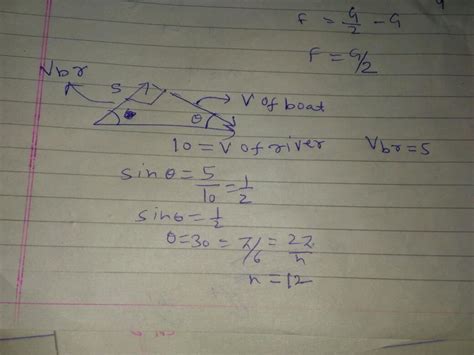 F = G/2 - G
F = G/2
Vbr
5
V of boat
θ
10 = V of river
Vbr = 5
sinθ = 5/10 = 1/2
sinθ = 1/2
θ = 30 = π/6 = 2π/n
n = 12